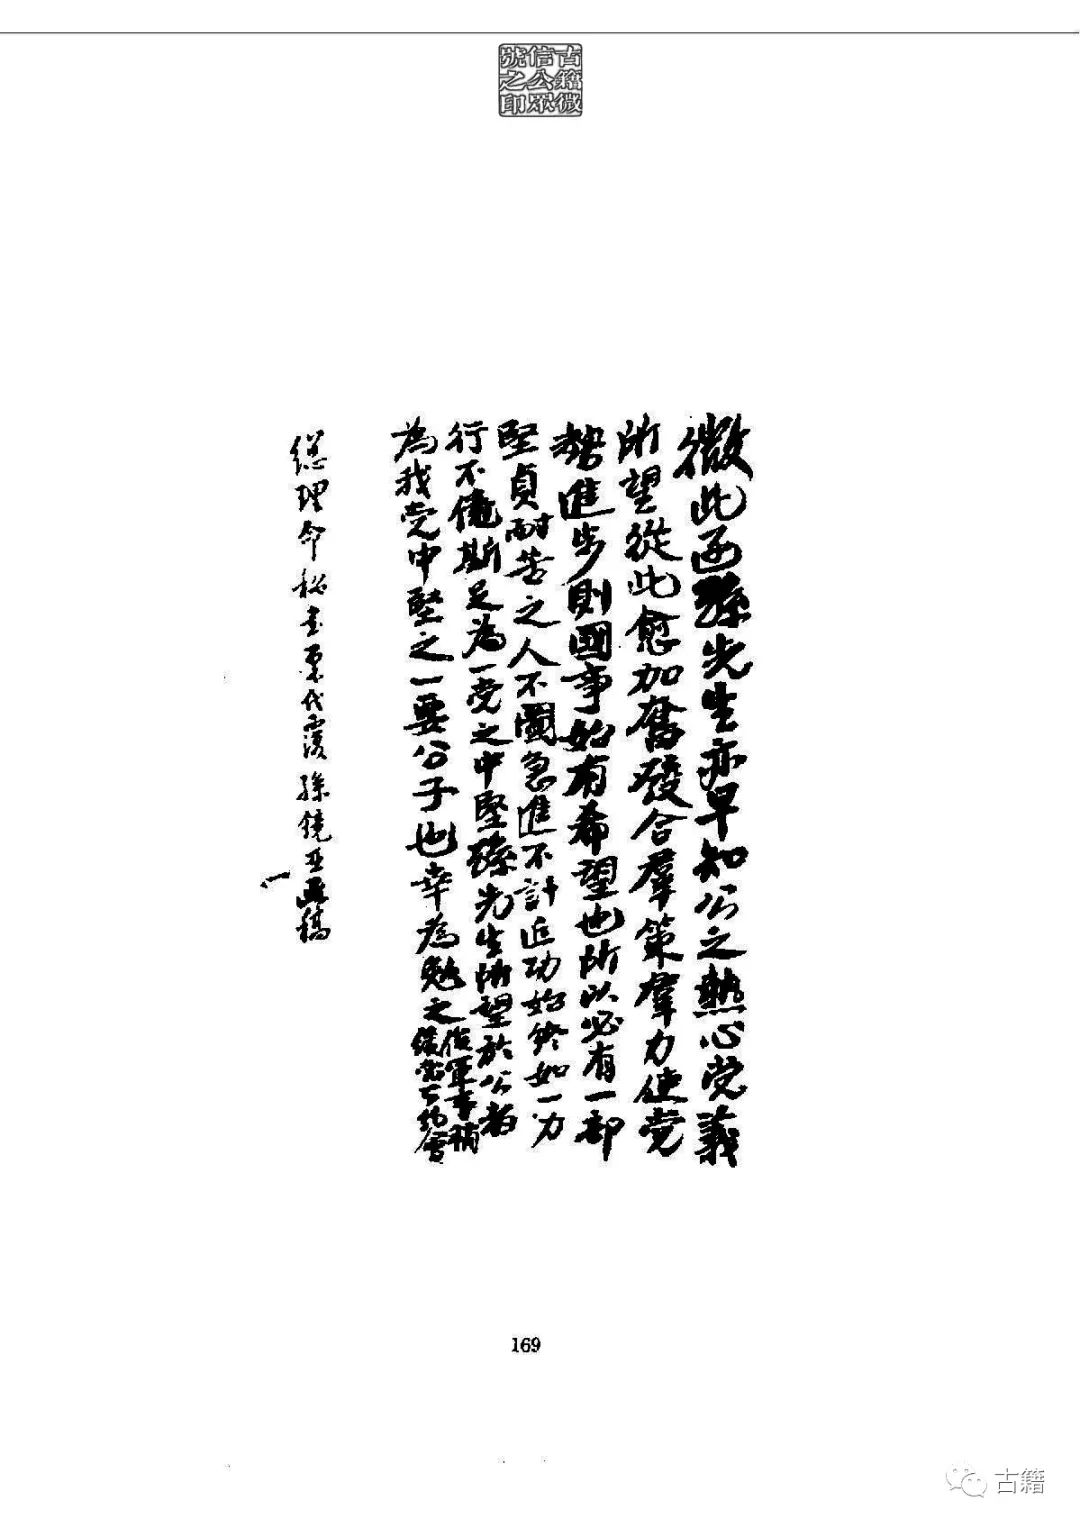 古籍微
信公眾
號之印
微此函孫先生亦早知公之熱心党義
所望從此愈加奮發合羣策羣力使党
勢進步則國事始有希望也所以必有一部
堅貞耐苦之人不圖急進不計近功始終如一力
行不儳斯足為一党之中堅孫先生所望於公者
為我党中堅之一要公子也幸為勉之
總理命秘書處代覆孫鏡亞函稿
一
169
古籍